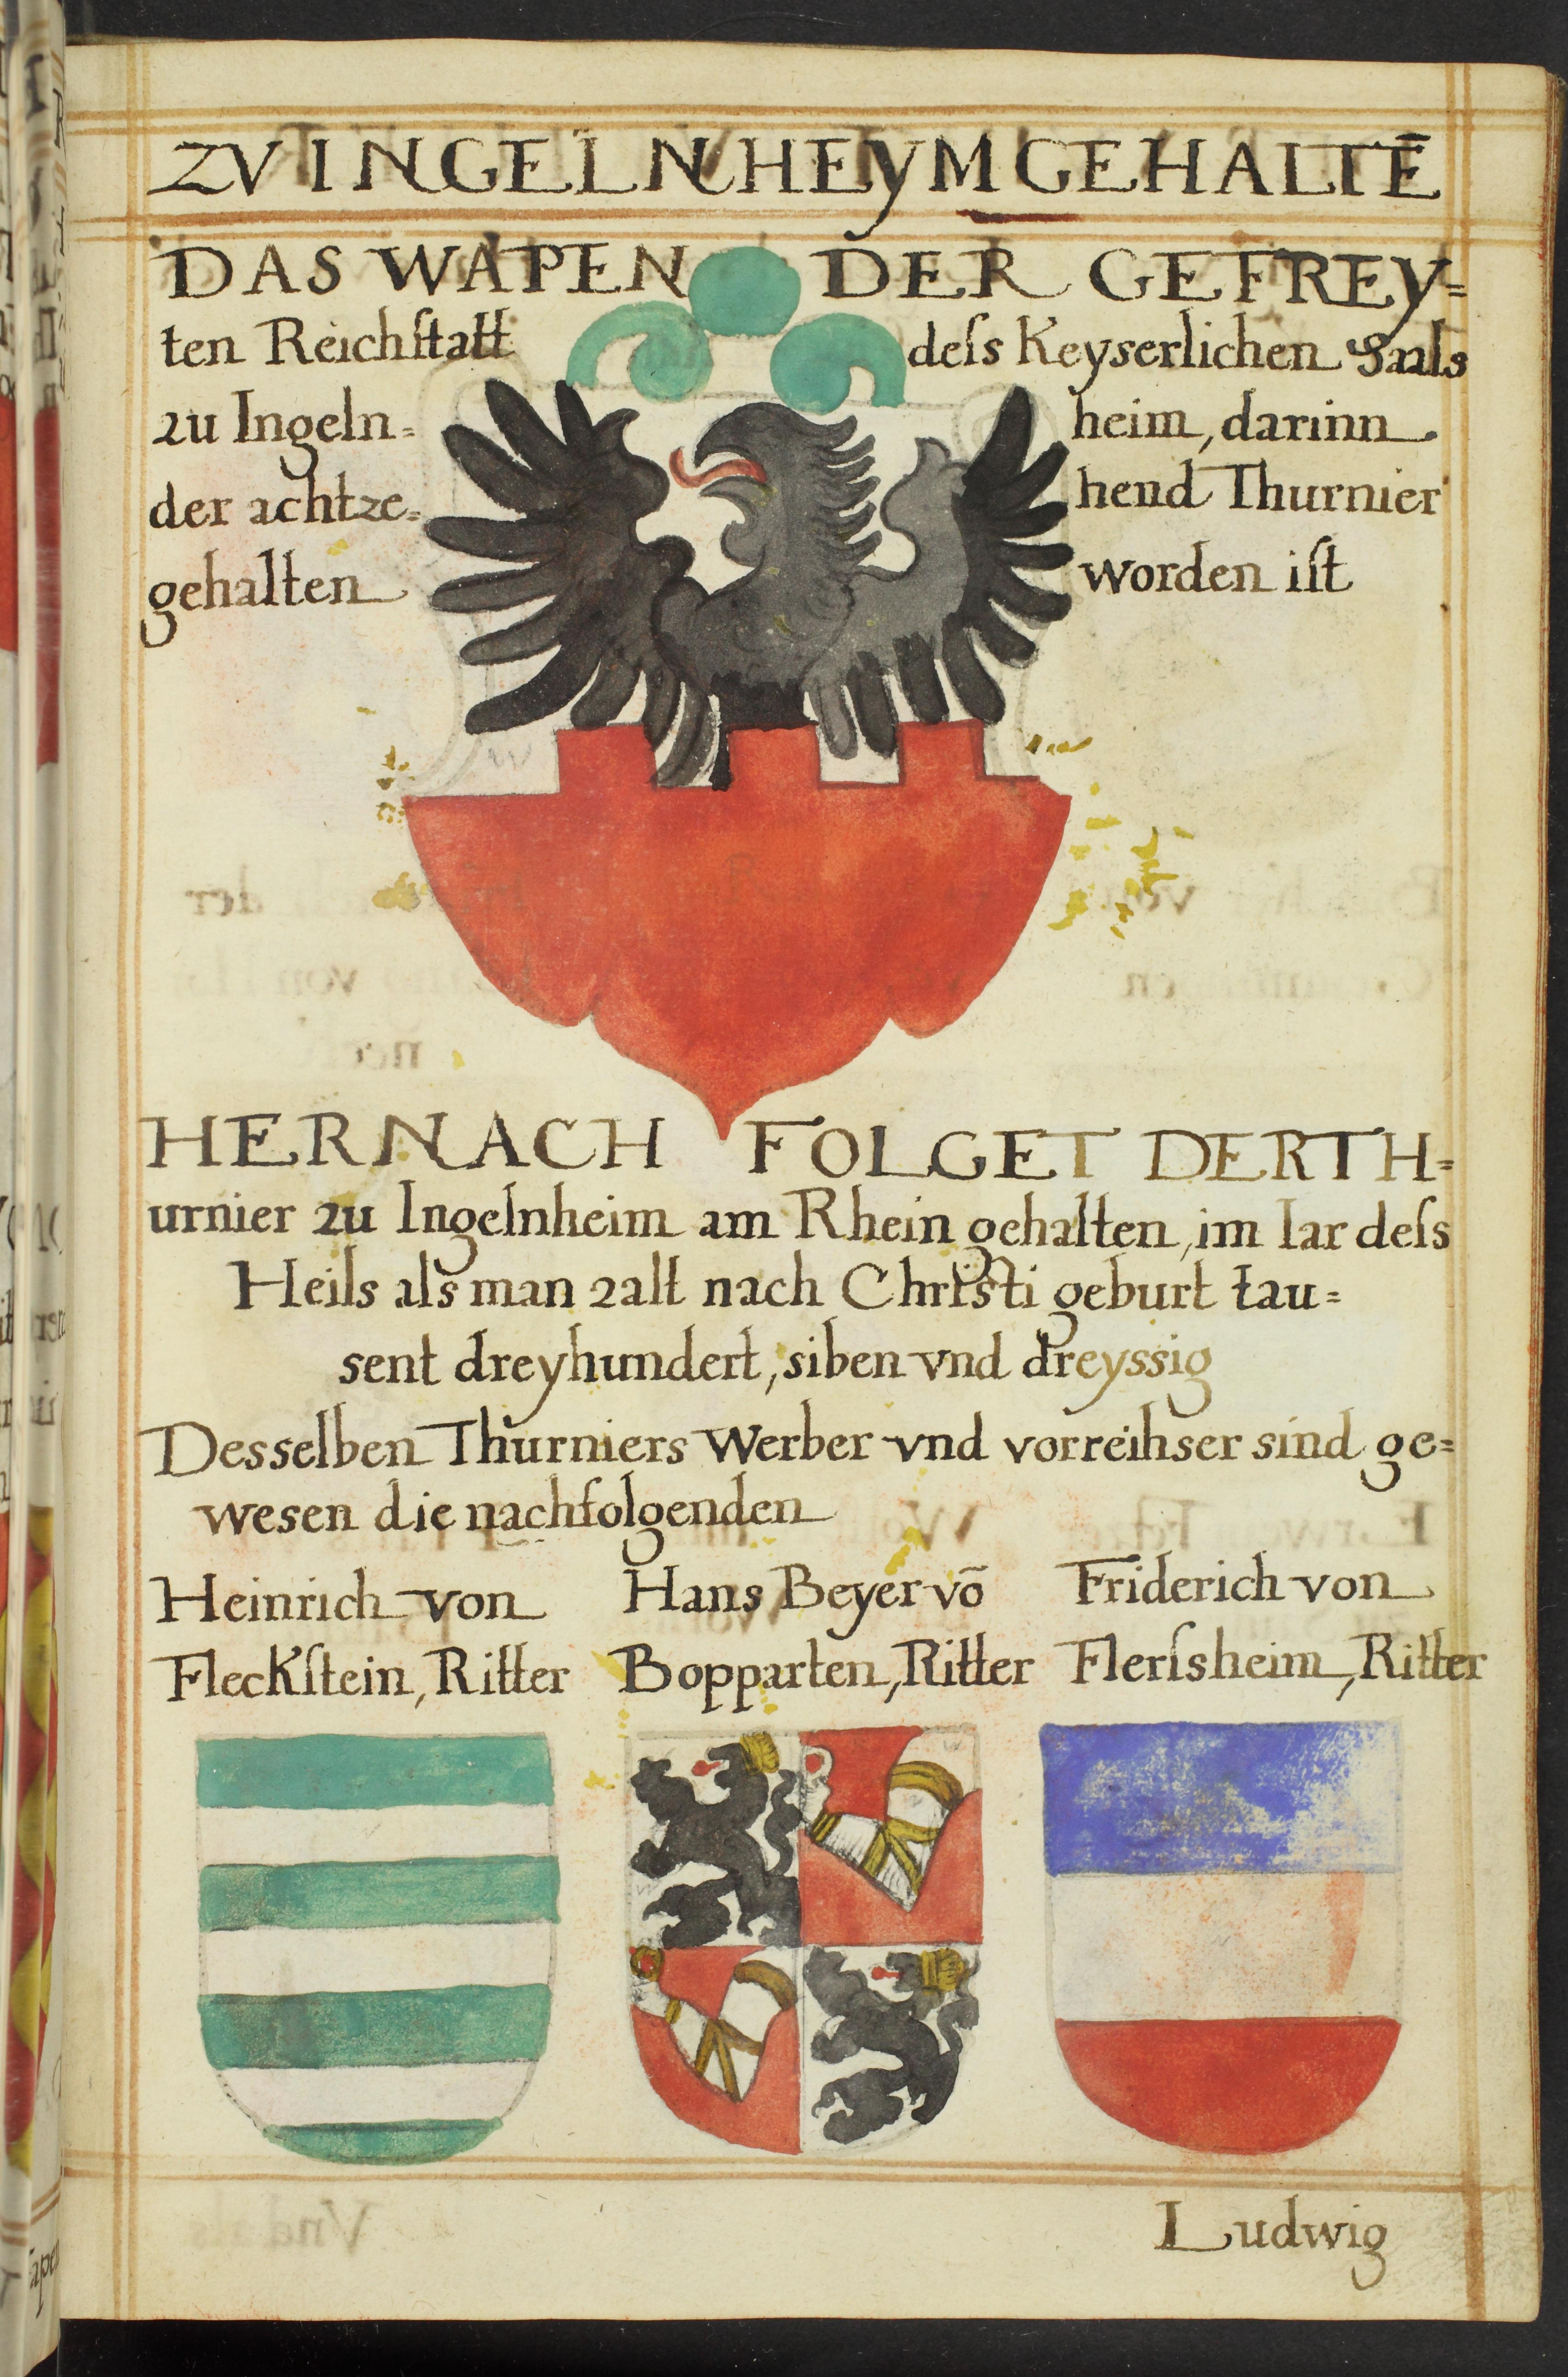 ZV INGELNHEyM GEHALTĒ
DAS WAPEN DER GEFREy=
ten Reichſtatt deſs Keyserlichen Saals
zu Ingeln= heim, darinn
der achtze= hend Thurnier
gehalten worden iſt
HERNACH FOLGET DER TH=
urnier zu Ingelnheim am Rhein gehalten, im Iar deſs
Heils als man zalt nach Christi geburt tau=
sent dreyhundert, siben vnd dreyssig
Desselben Thurniers Werber vnd vorreihser sind ge=
wesen die nachfolgenden
Heinrich von
Fleckſtein, Ritter
Hans Beyer võ
Bopparten, Ritter
Friderich von
Flerſsheim, Ritter
Ludwig